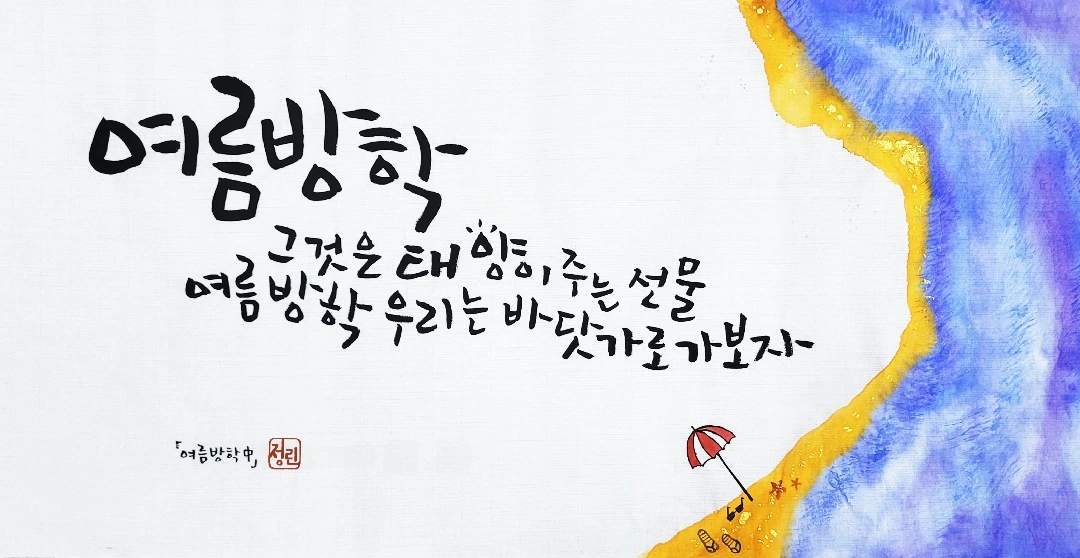 여름방학
그것은 태양이 주는 선물
여름방학 우리는 바닷가로 가보자
「여름방학中」 정린